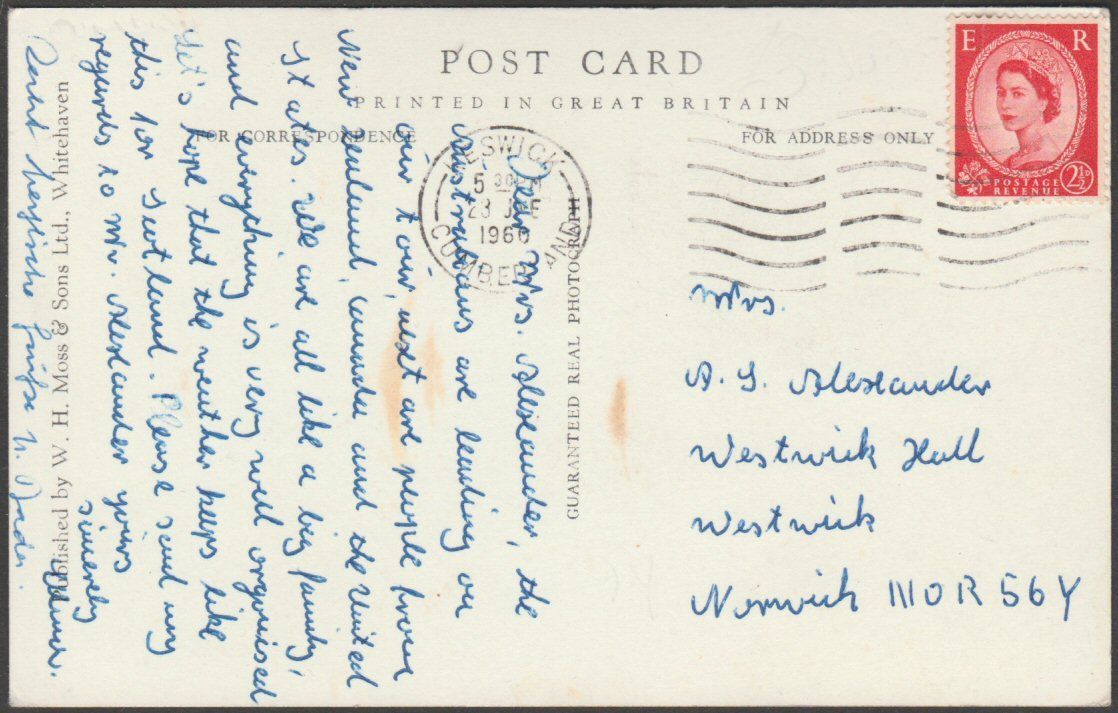 POST CARD
PRINTED IN GREAT BRITAIN
FOR CORRESPONDENCE
FOR ADDRESS ONLY
E R
POSTAGE
REVENUE
2½D
KESWICK
5 30PM
1960
CUMBERLAND
GUARANTEED REAL PHOTOGRAPH
Published by W. H. Moss & Sons Ltd., Whitehaven
Dear Mrs. Alexander, the
Australians are leading on
our tour, next are people from
New Zealand, Canada and the United
States. We are all like a big family,
and everything is very well organised
Let's hope that the weather keeps like
this for Scotland. Please send my
regards to Mr. Alexander yours
sincerely
Recht herzliche Grüße
Mrs.
Alexander
Westwick Hall
Westwick
Norwich NOR 56Y